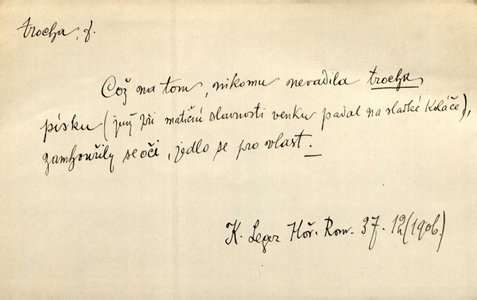 trocha, f.
Což na tom, nikomu nevadila trocha
písku (jenž při matiční slavnosti venku padal na sladké koláče),
zamhouřily se oči, jedlo se pro vlast.
K. Leger Hóř. Rom. 37. 12 (1906)